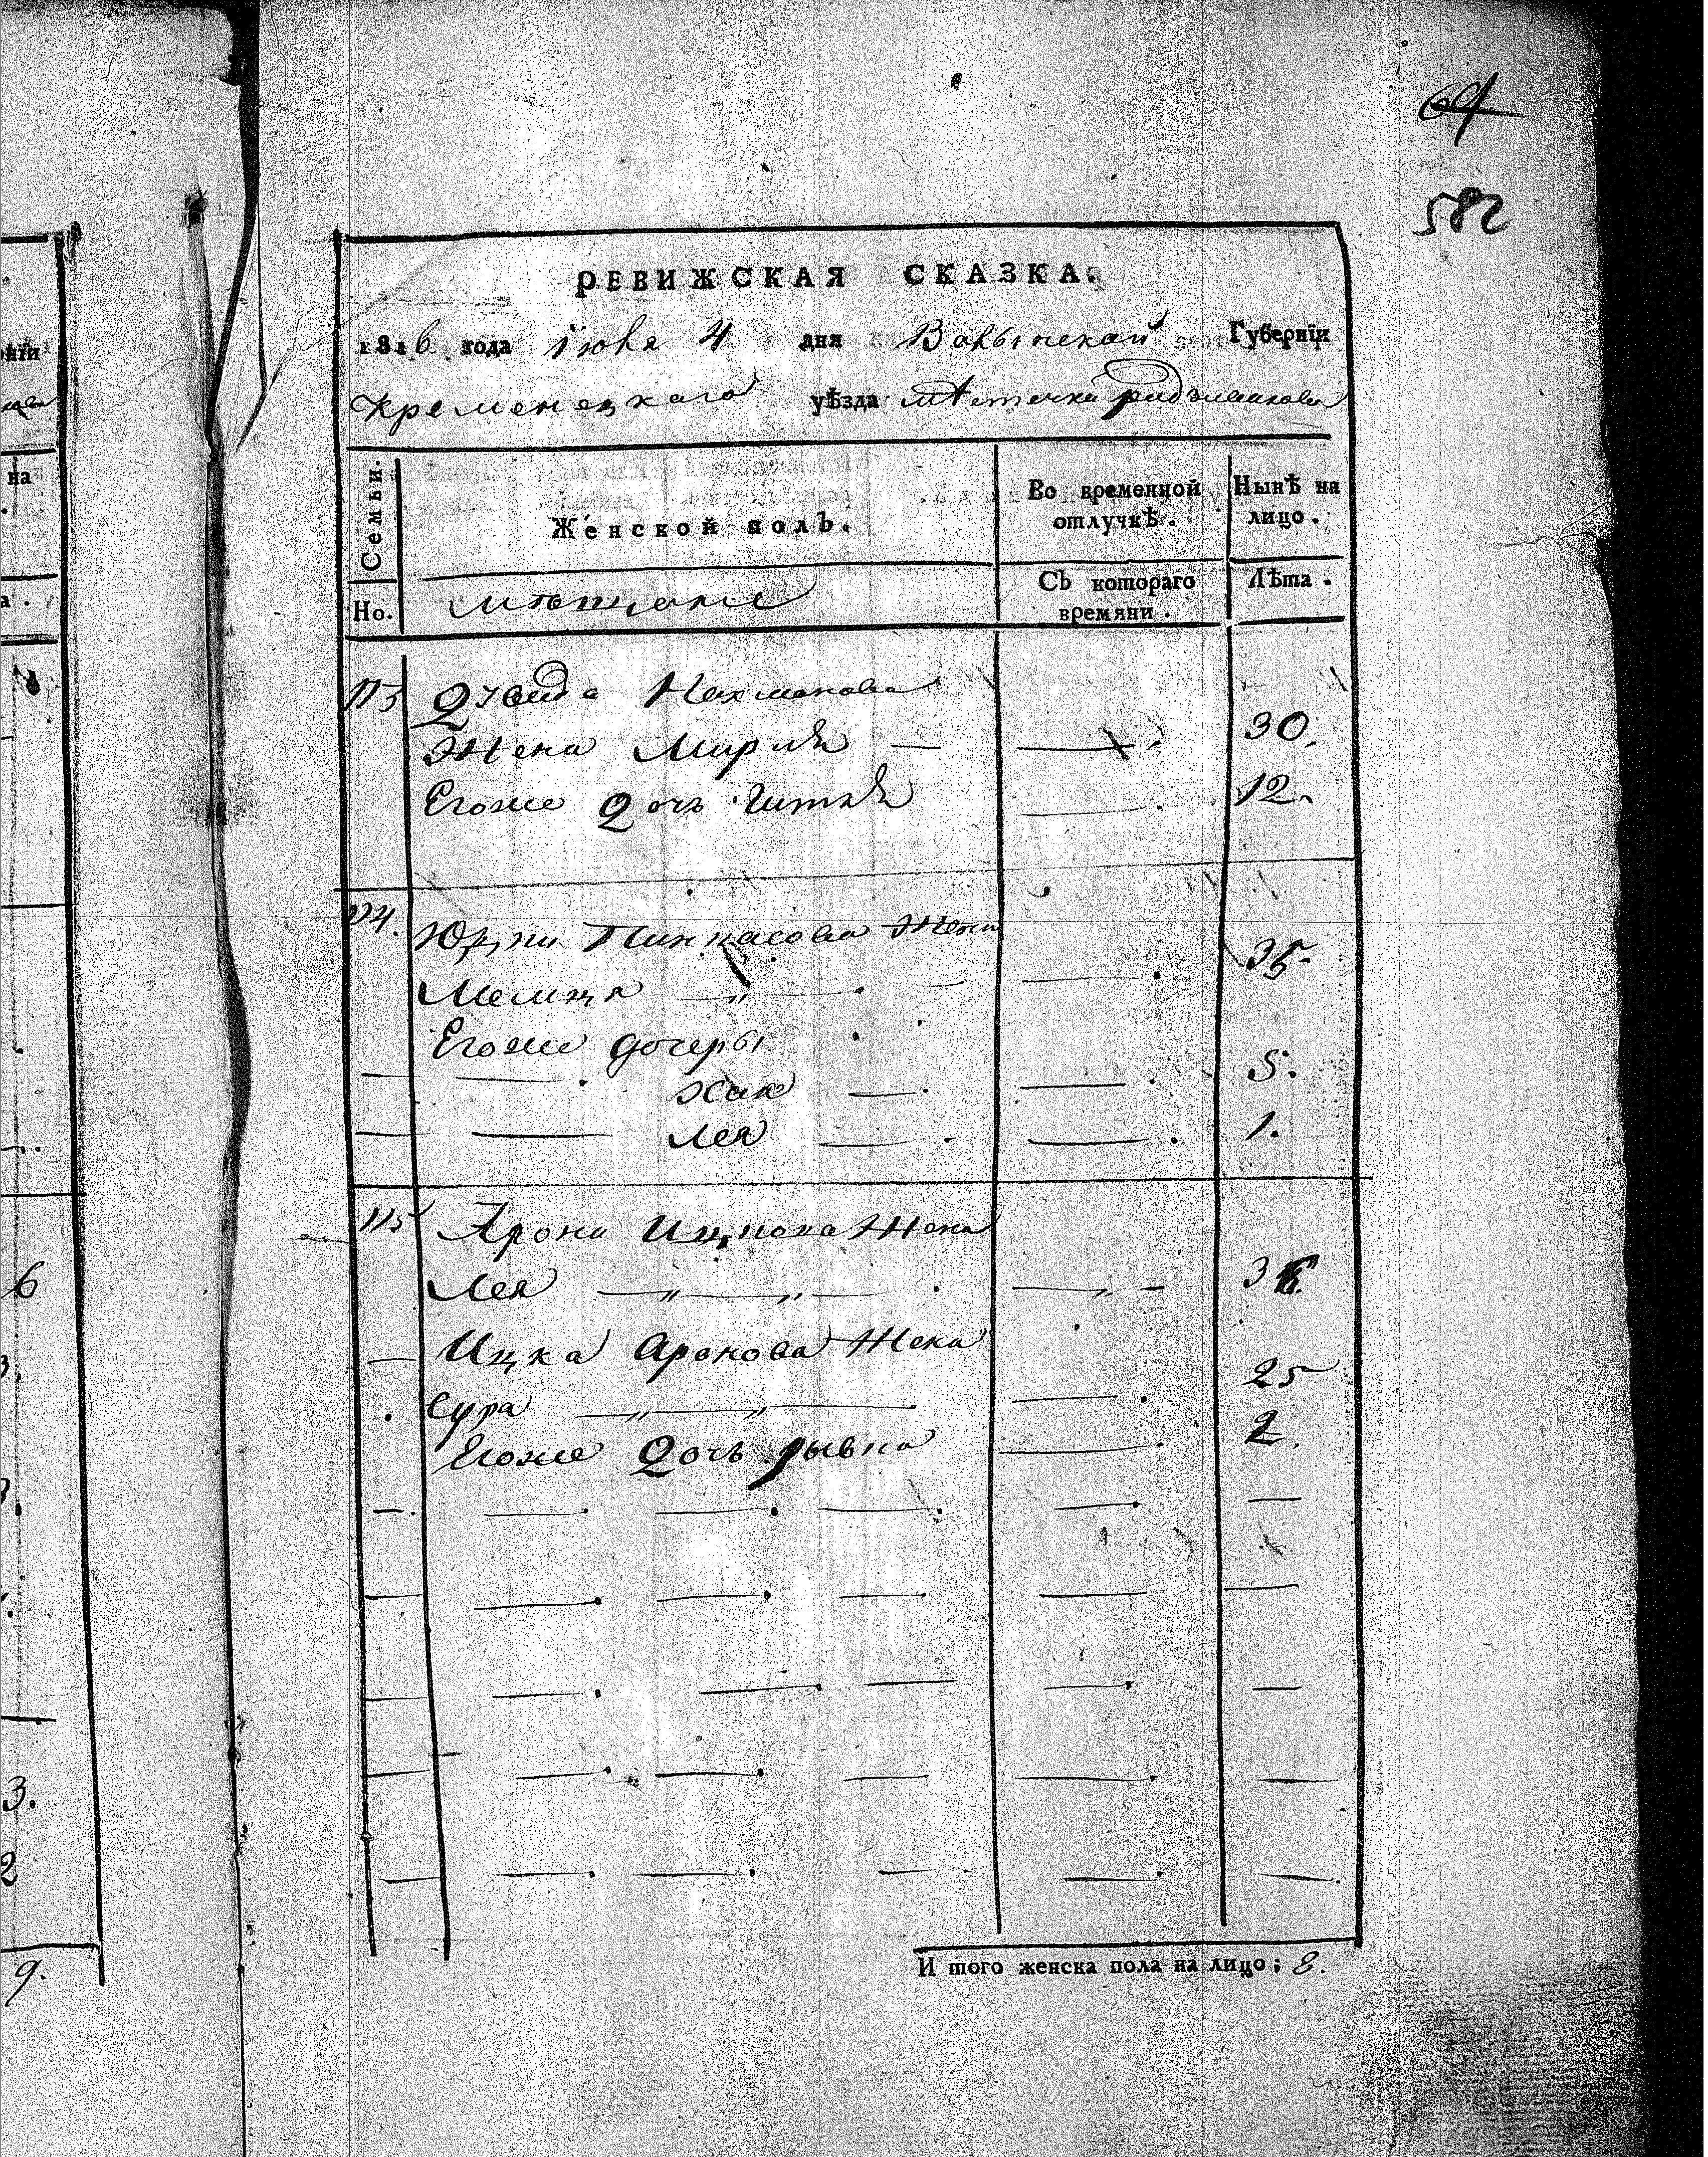 64
582
РЕВИЖСКАЯ СКАЗКА.
1816 года Июня 4 дня Волынской Губернїи
Кременецкаго уѣзда мѣстечка радзивилова
Семьи.
Женской полъ.
Во временной отлучкѣ.
Нынѣ на лицо.
Но.
мѣщане
Съ котораго времяни.
Лѣта.
113 Давида Нахманова
Жена Мирля — 30.
Егоже Дочь Гитля 12.
114. Пинкасова Жена
35.
Егоже дочеры
Хая — 5.
Лея 1.
115 Арона Ицкова Жена
Лея 3
Ицка Аронова Жена
Сура 25
Егоже Дочь рывка 2.
И того женска пола на лицо; 8.
6
3.
2
9.